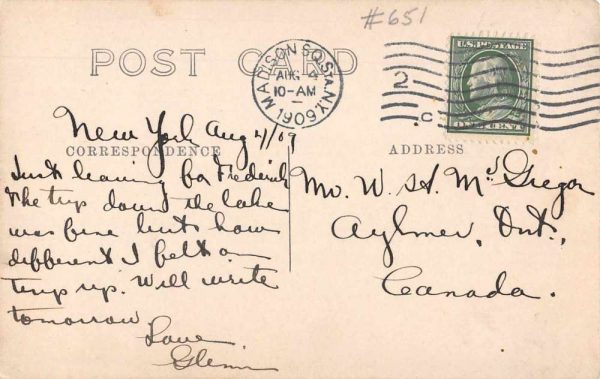 #651
POST CARD
MADISON SQ. STA. N.Y.
AUG 4
10-AM
1909
2
C
U.S. POSTAGE
New York Aug 4/09
CORRESPONDENCE
ADDRESS
Just leaving for
The trip down the lake
was fine but how
different I felt on
trip up. Will write
tomorrow
Love
Glenn
W. H. McGregor
Aylmer, Ont.,
Canada.